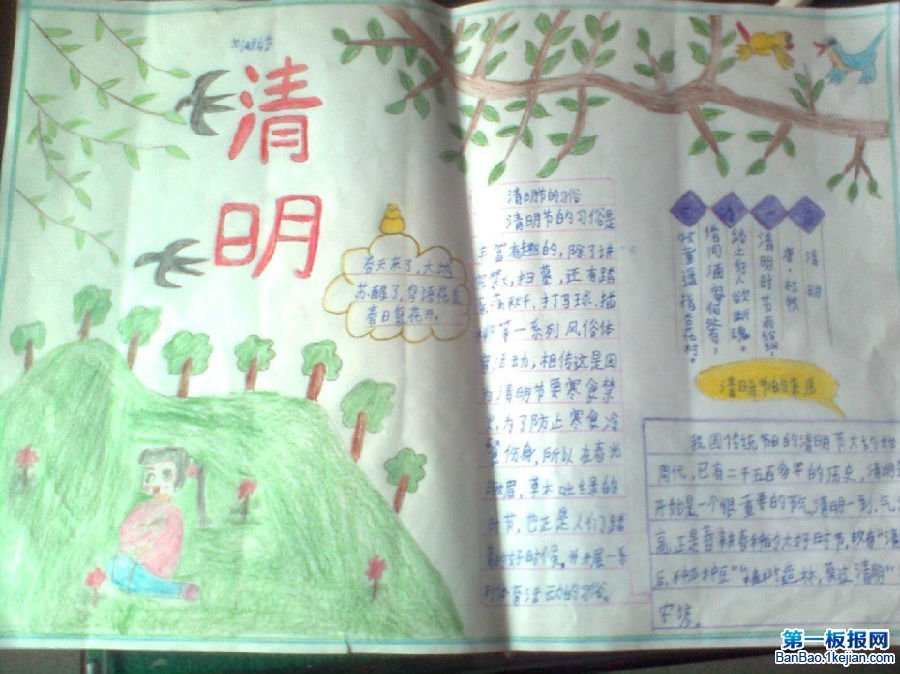 清
明
春天来了，大地
苏醒了，鸟语花
春日复花开。
清明节的习俗
清明节的习俗是
丰富有趣的，除了讲
禁火，扫墓，还有踏
青、荡秋千、打马球、插
柳等一系列风俗体
育活动，相传这是因
为清明节要寒食禁
火，为了防止寒食冷
餐伤身，所以在春光
明媚，草木吐绿的
时节，也正是人们踏
青的好时候，并开展一系
列体育活动的习俗。
清明
唐·杜牧
清明时节雨纷纷，
路上行人欲断魂。
借问酒家何处有，
牧童遥指杏花村。
清明节的来历
我国传统节日的清明节大约始
周代，已有二千五百多年的历史，清明是
开始是一个很重要的节气，清明一到，气
高，正是春耕春种的大好时节，故有“清
后，种瓜种豆”“植树造林，莫过清明”
农谚。
第一板报网
BanBao.1kejian.com